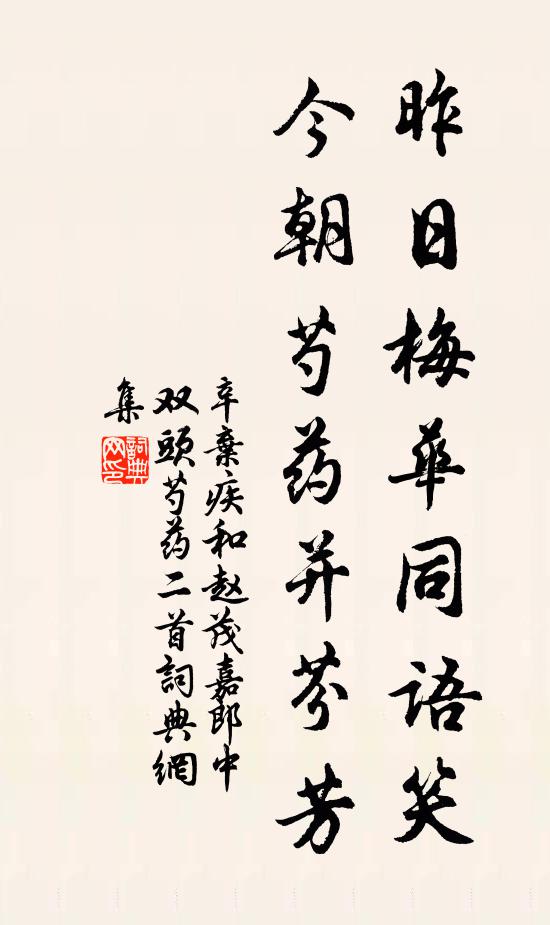 昨日梅華同语笑
今朝芍药并芬芳
辛棄疾和赵茂嘉郎中
双頭芍药二首詞典網
集
詞典
网印